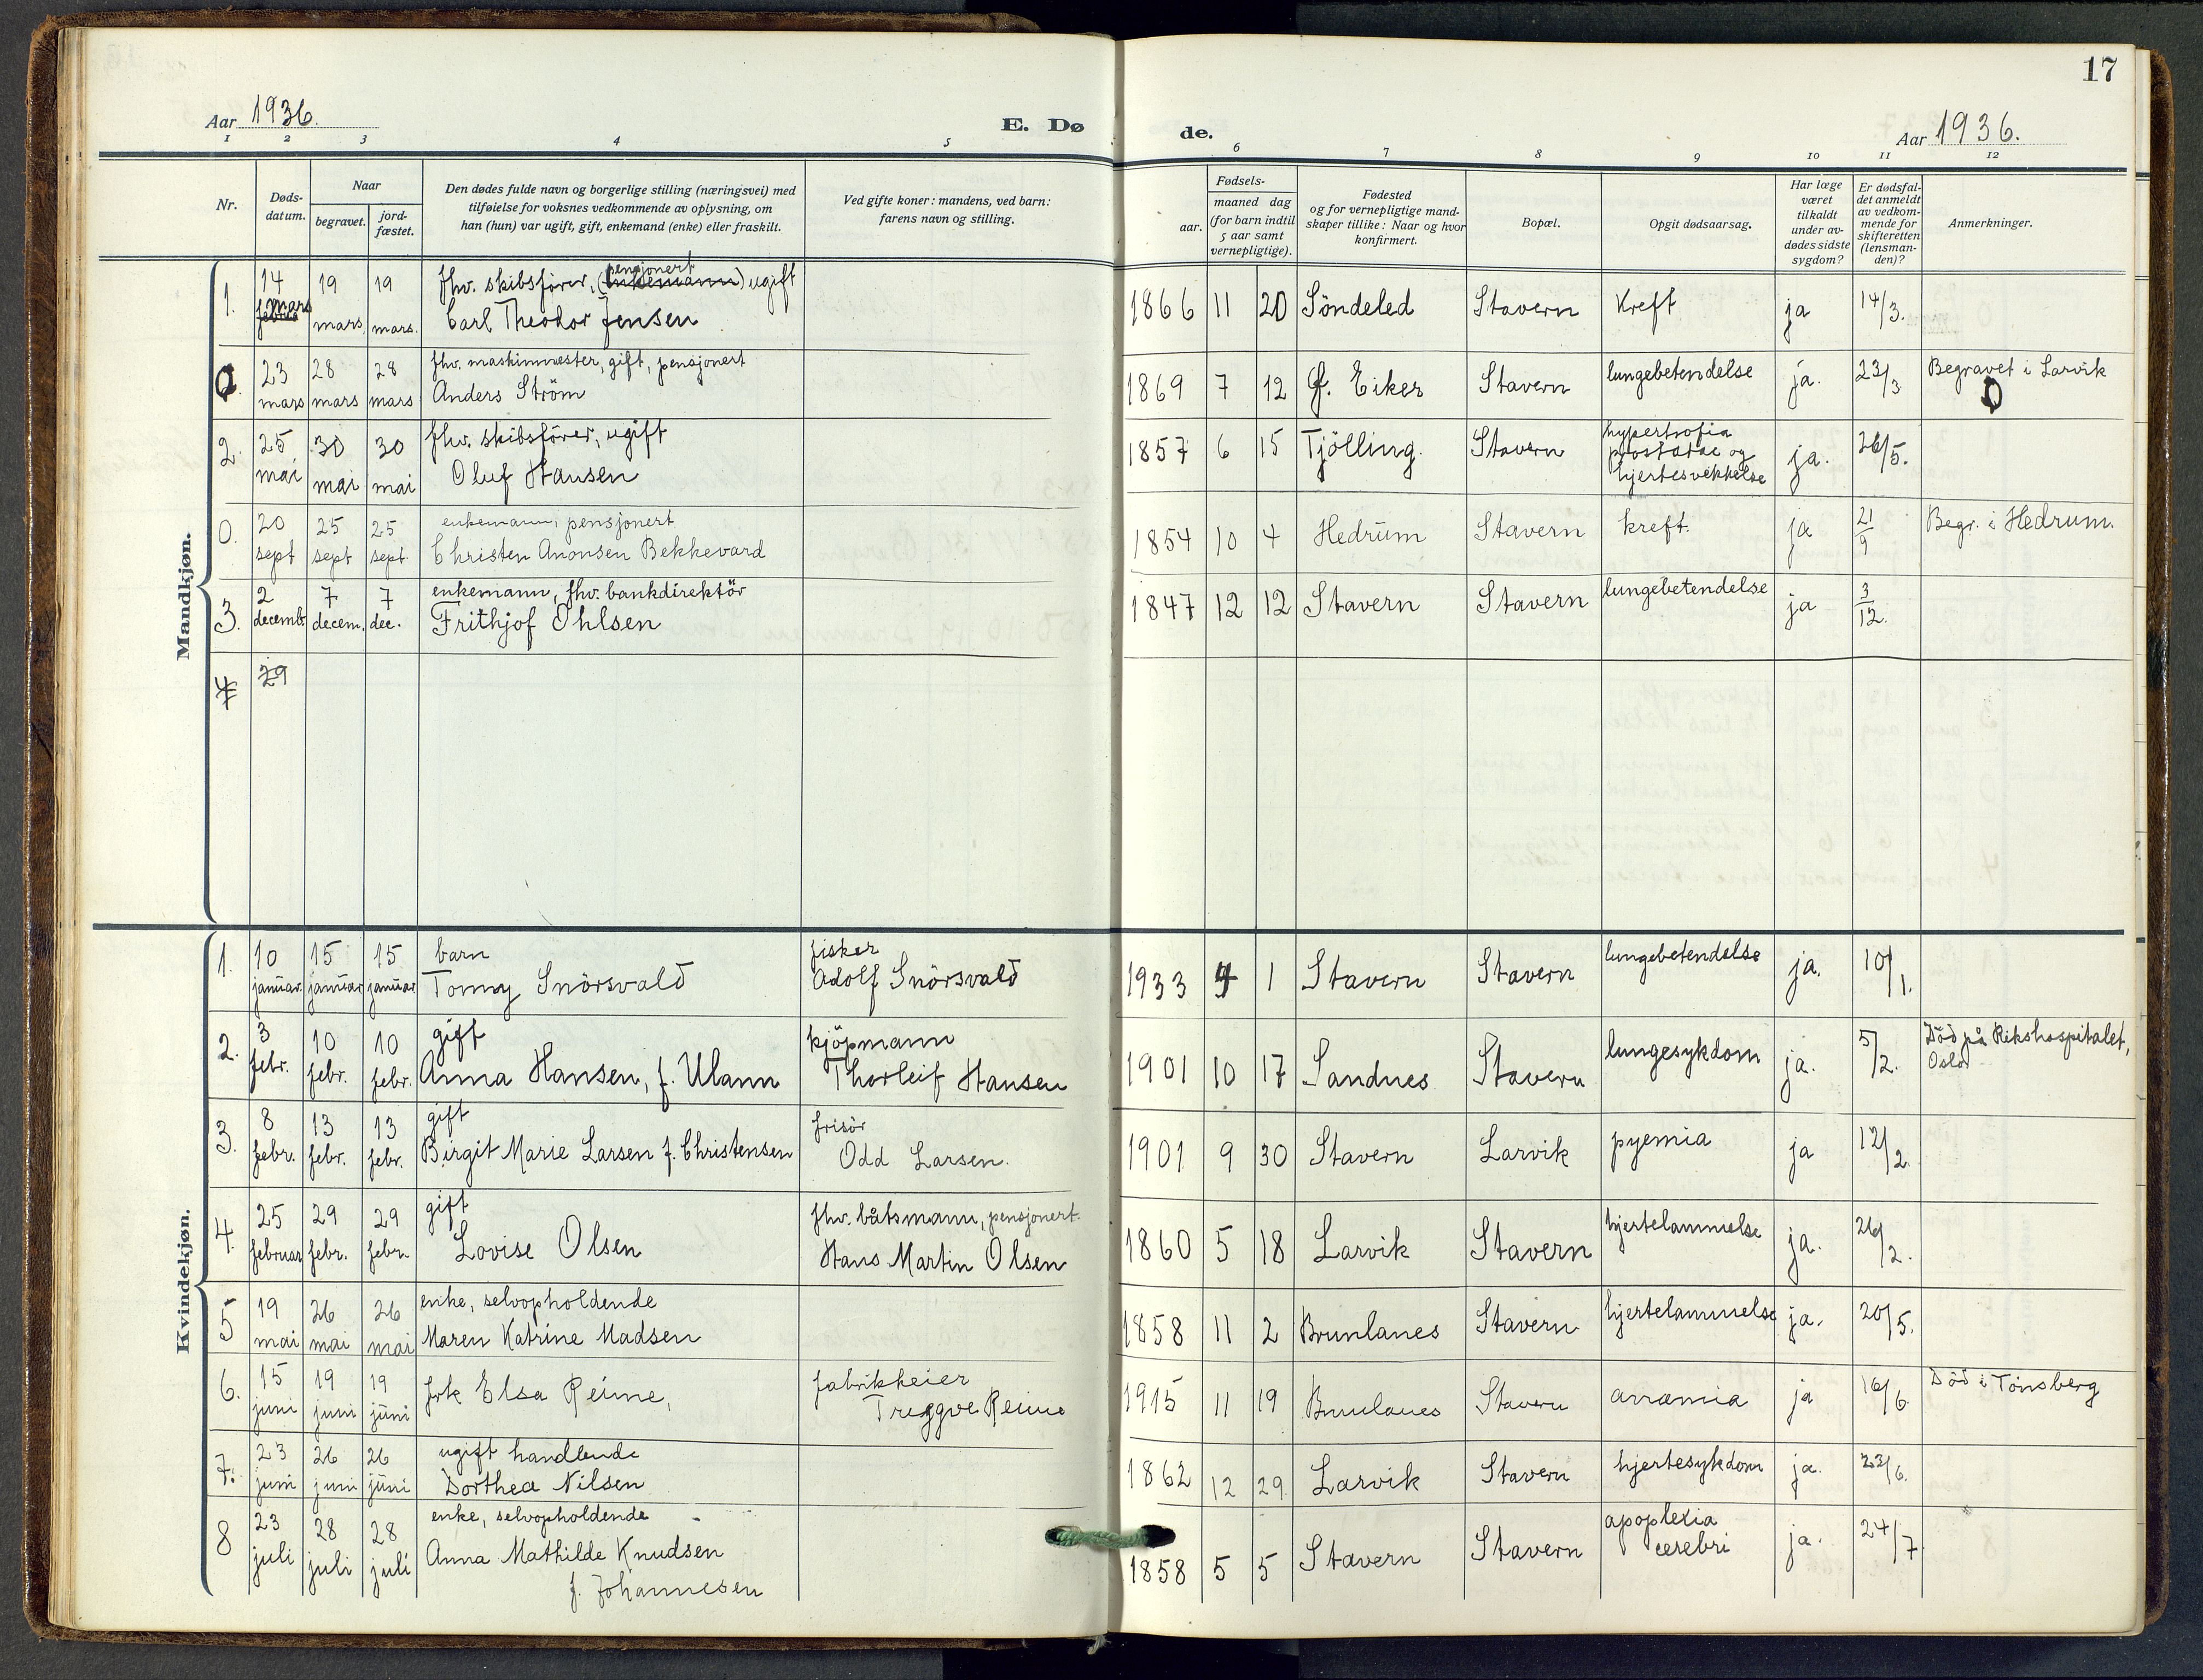 17
Aar 1936.
E. Dø de.
Aar 1936.
1 2 3 4 5 6 7 8 9 10 11 12
Nr.
Døds-
datum.
Naar
begravet.
jord-
fæstet.
Den dødes fulde navn og borgerlige stilling (næringsvei) med
tilføielse for voksnes vedkommende av oplysning, om
han (hun) var ugift, gift, enkemand (enke) eller fraskilt.
Ved gifte koner: mandens, ved barn:
farens navn og stilling.
Fødsels-
aar. maaned dag
(for barn indtil
5 aar samt
vernepligtige).
Fødested
og for vernepligtige mand-
skaper tillike: Naar og hvor
konfirmert.
Bopæl.
Opgit dødsaarsag.
Har læge
været
tilkaldt
under av-
dødes sidste
sygdom?
Er dødsfal-
det anmeldt
av vedkom-
mende for
skifteretten
(lensman-
den)?
Anmerkninger.
Mandkjøn.
1. 14 mars 19 mars. 19 mars. fhv. skibsfører, (enkemann) pensjonert ugift
Carl Theodor Jensen
1866 11 20 Söndeled Stavern Kreft ja 14/3.
0 23 mars 28 mars 28 mars fhv. maskinmester, gift, pensjonert
Anders Ström
1869 7 12 Ø. Eiker Stavern lungebetendelse ja. 23/3 Begravet i Larvik
0
2. 25 mai 30 mai 30 mai fhv. skibsförer, ugift
Oluf Hansen
1857 6 15 Tjölling. Stavern hypertrofia
prostatae og
hjertesvekkelse ja. 26/5.
0. 20 sept 25 sept 25 sept. enkemann, pensjonert
Christen Anonsen Bekkevard
1854 10 4 Hedrum Stavern kreft. ja 21/9 Begr. i Hedrum.
3. 2 decemb. 7 decem. 7 dec. enkemann, fhv. bankdirektör
Frithjof Ohlsen
1847 12 12 Stavern Stavern lungebetendelse ja 3/12.
4 29
Kvindekjøn.
1. 10 januar. 15 januar 15 januar barn
Tonny Snörsvald
fisker
Adolf Snörsvald
1933 4 1 Stavern Stavern lungebetendelse ja. 10/1.
2. 3 febr. 10 febr. 10 febr. gift
Anna Hansen, f. Ulann
kjöpmann
Thorleif Hansen
1901 10 17 Sandnes Stavern lungesykdom ja. 5/2. Död på Rikshospitalet,
Oslo
3. 8 febr. 13 febr. 13 febr. gift
Birgit Marie Larsen f. Christensen
frisör
Odd Larsen.
1901 9 30 Stavern Larvik pyemia ja 12/2.
4. 25 februar 29 febr. 29 febr. gift
Lovise Olsen
fhv. båtsmann, pensjonert.
Hans Martin Olsen
1860 5 18 Larvik Stavern hjertelammelse ja. 26/2.
5 19 mai 26 mai 26 mai enke, selvopholdende
Maren Katrine Madsen
1858 11 2 Brunlanes Stavern hjertelammelse ja. 20/5.
6. 15 juni 19 juni 19 juni frk Elsa Reime,
fabrikkeier
Tryggve Reime
1915 11 19 Brunlanes Stavern anæmia ja 16/6 Död i Tönsberg
7. 23 juni 26 juni 26 juni ugift handlende
Dorthea Nilsen
1862 12 29 Larvik Stavern hjertesykdom ja. 23/6.
8 23 juli 28 juli 28 juli enke, selvopholdende
Anna Mathilde Knudsen
f. Johannesen
1858 5 5 Stavern Stavern apoplexia
cerebri ja. 24/7